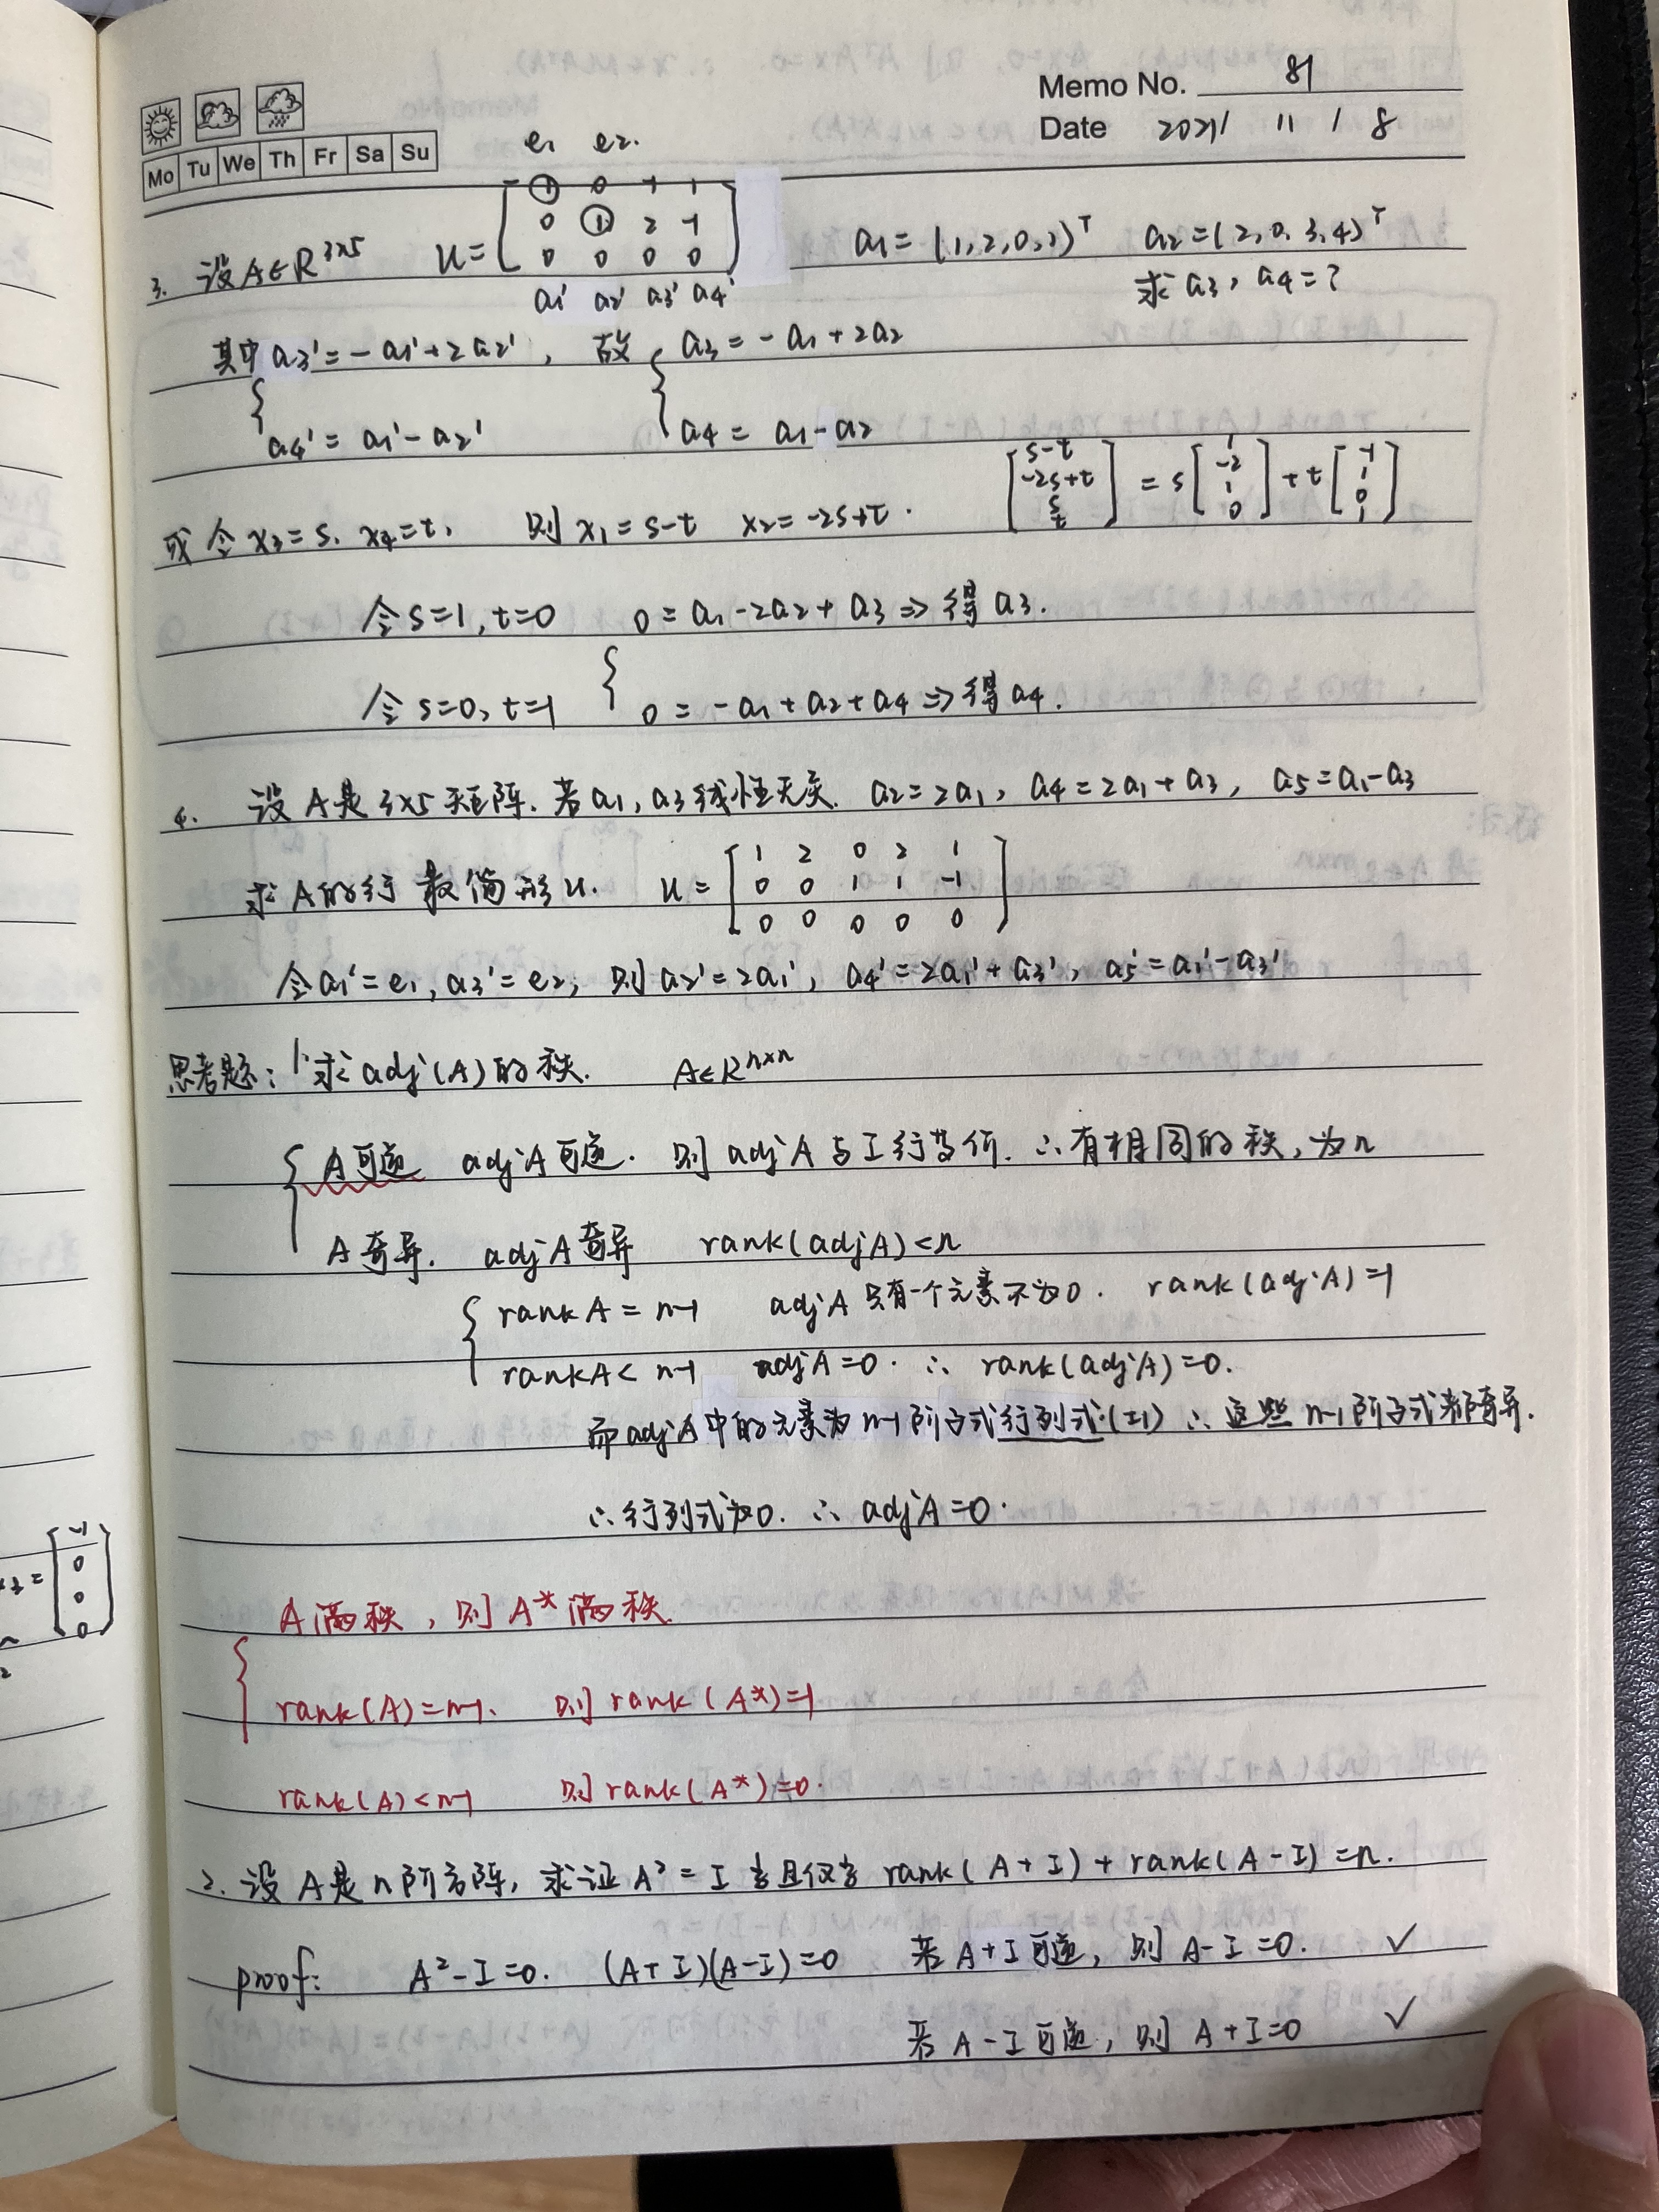 Memo No. 81
Date 2021 / 11 / 8
Mo Tu We Th Fr Sa Su
e₁ e₂.
3. 设A∈R³ˣ⁵ U=[1 0 -1 1; 0 1 2 -1; 0 0 0 0] a₁=(1,2,0,3)ᵀ a₂=(2,0,3,4)ᵀ
a₁' a₂' a₃' a₄' 求a₃, a₄=?
其中 a₃'=-a₁'+2a₂', 故 { a₃=-a₁+2a₂
{ a₄'=a₁'-a₂' a₄=a₁-a₂
或令x₃=s, x₄=t, 则x₁=s-t x₂=-2s+t. [s-t; -2s+t; s; t] = s[1; -2; 1; 0] + t[-1; 1; 0; 1]
令s=1, t=0 0=a₁-2a₂+a₃ ⇒ 得a₃.
令s=0, t=1 { 0=-a₁+a₂+a₄ ⇒ 得a₄.
4. 设A是3×5矩阵. 若a₁, a₃线性无关. a₂=2a₁, a₄=2a₁+a₃, a₅=a₁-a₃
求A的行最简形U. U=[1 2 0 2 1; 0 0 1 1 -1; 0 0 0 0 0]
令a₁'=e₁, a₃'=e₂, 则a₂'=2a₁', a₄'=2a₁'+a₃', a₅'=a₁'-a₃'
思考题: 1. 求adj(A)的秩. A∈Rⁿˣⁿ
{ A可逆 adjA可逆. 则adjA与I行等价. ∴有相同的秩, 为n
A奇异. adjA奇异 rank(adjA)<n
{ rankA=n-1 adjA只有一个元素不为0. rank(adjA)=1
rankA<n-1 adjA=0. ∴ rank(adjA)=0.
而adjA中的元素为n-1阶子式行列式·(±1) ∴这些n-1阶子式都奇异.
∴行列式为0. ∴ adjA=0.
A满秩, 则A*满秩.
{ rank(A)=n-1. 则rank(A*)=1
rank(A)<n-1 则rank(A*)=0.
2. 设A是n阶方阵, 求证A²=I当且仅当rank(A+I)+rank(A-I)=n.
proof: A²-I=0. (A+I)(A-I)=0 若A+I可逆, 则A-I=0. ✓
若A-I可逆, 则A+I=0 ✓
[-1; 0; 0; 0]